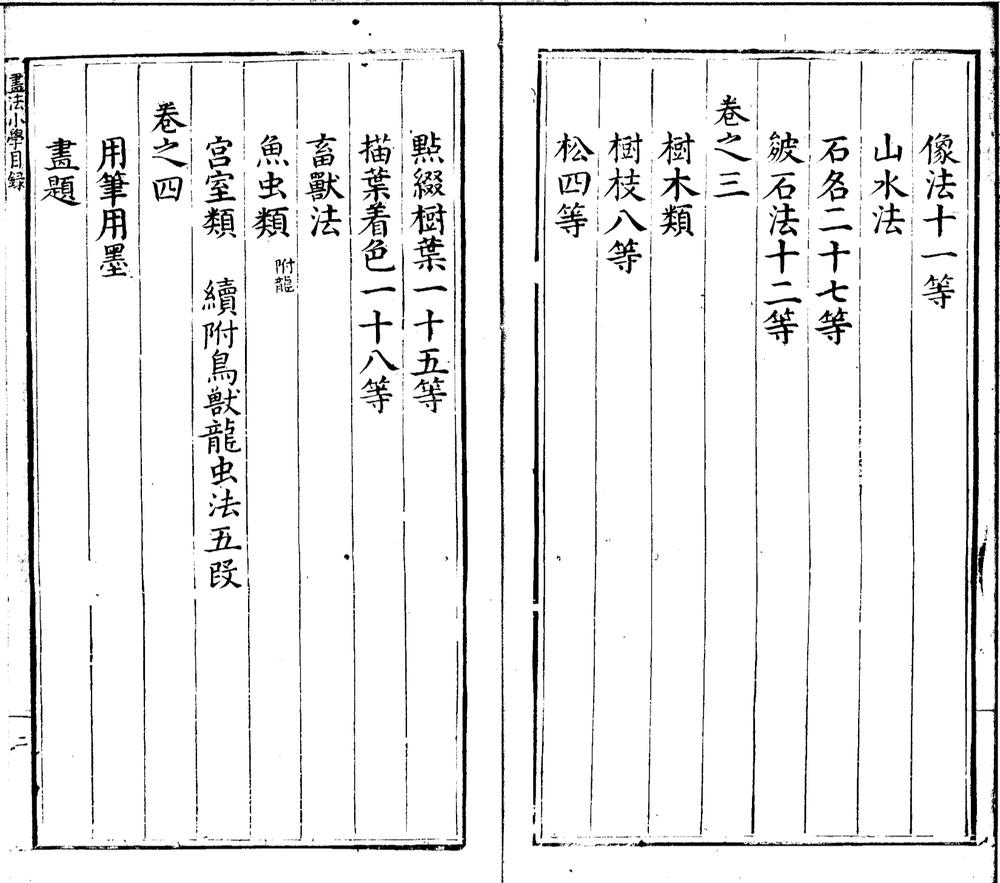 像法十一等
山水法
石名二十七等
皴石法十二等
卷之三
樹木類
樹枝八等
松四等
點綴樹葉一十五等
描葉着色一十八等
畜獸法
魚虫類 附龍
宮室類 續附鳥獸龍虫法五段
卷之四
用筆用墨
畫題
畫法小學目録
二